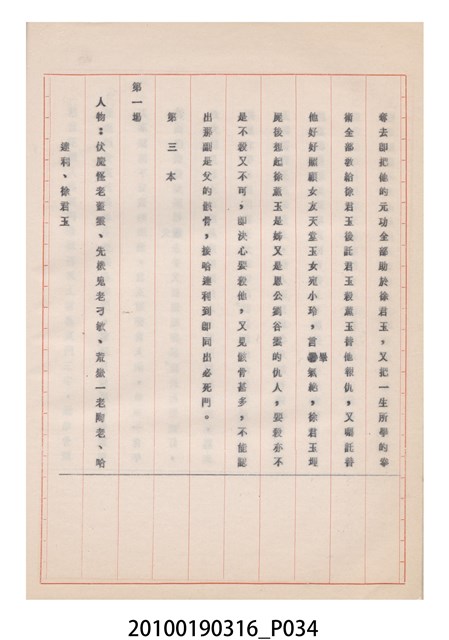 奪去即把他的元功全部助於徐君玉，又把一生所學的拳
術全部教給徐君玉後託君玉殺薰玉替他報仇，又囑託替
他好好照顧女友天堂玉女宛小玲，言畢氣絕，徐君玉埋
屍後想起徐薰玉是姊又是恩公劉谷雲的仇人，要殺亦不
是不殺又不可，即決心要殺他，又見骸骨甚多，不能認
出那副是父的骸骨，接哈連利到即同出必死門。
第三本
第一場
人物：伏魔怪老董雲、先機鬼老刁敏、荒嶽一老陶老、哈
連利、徐君玉
20100190316_P034